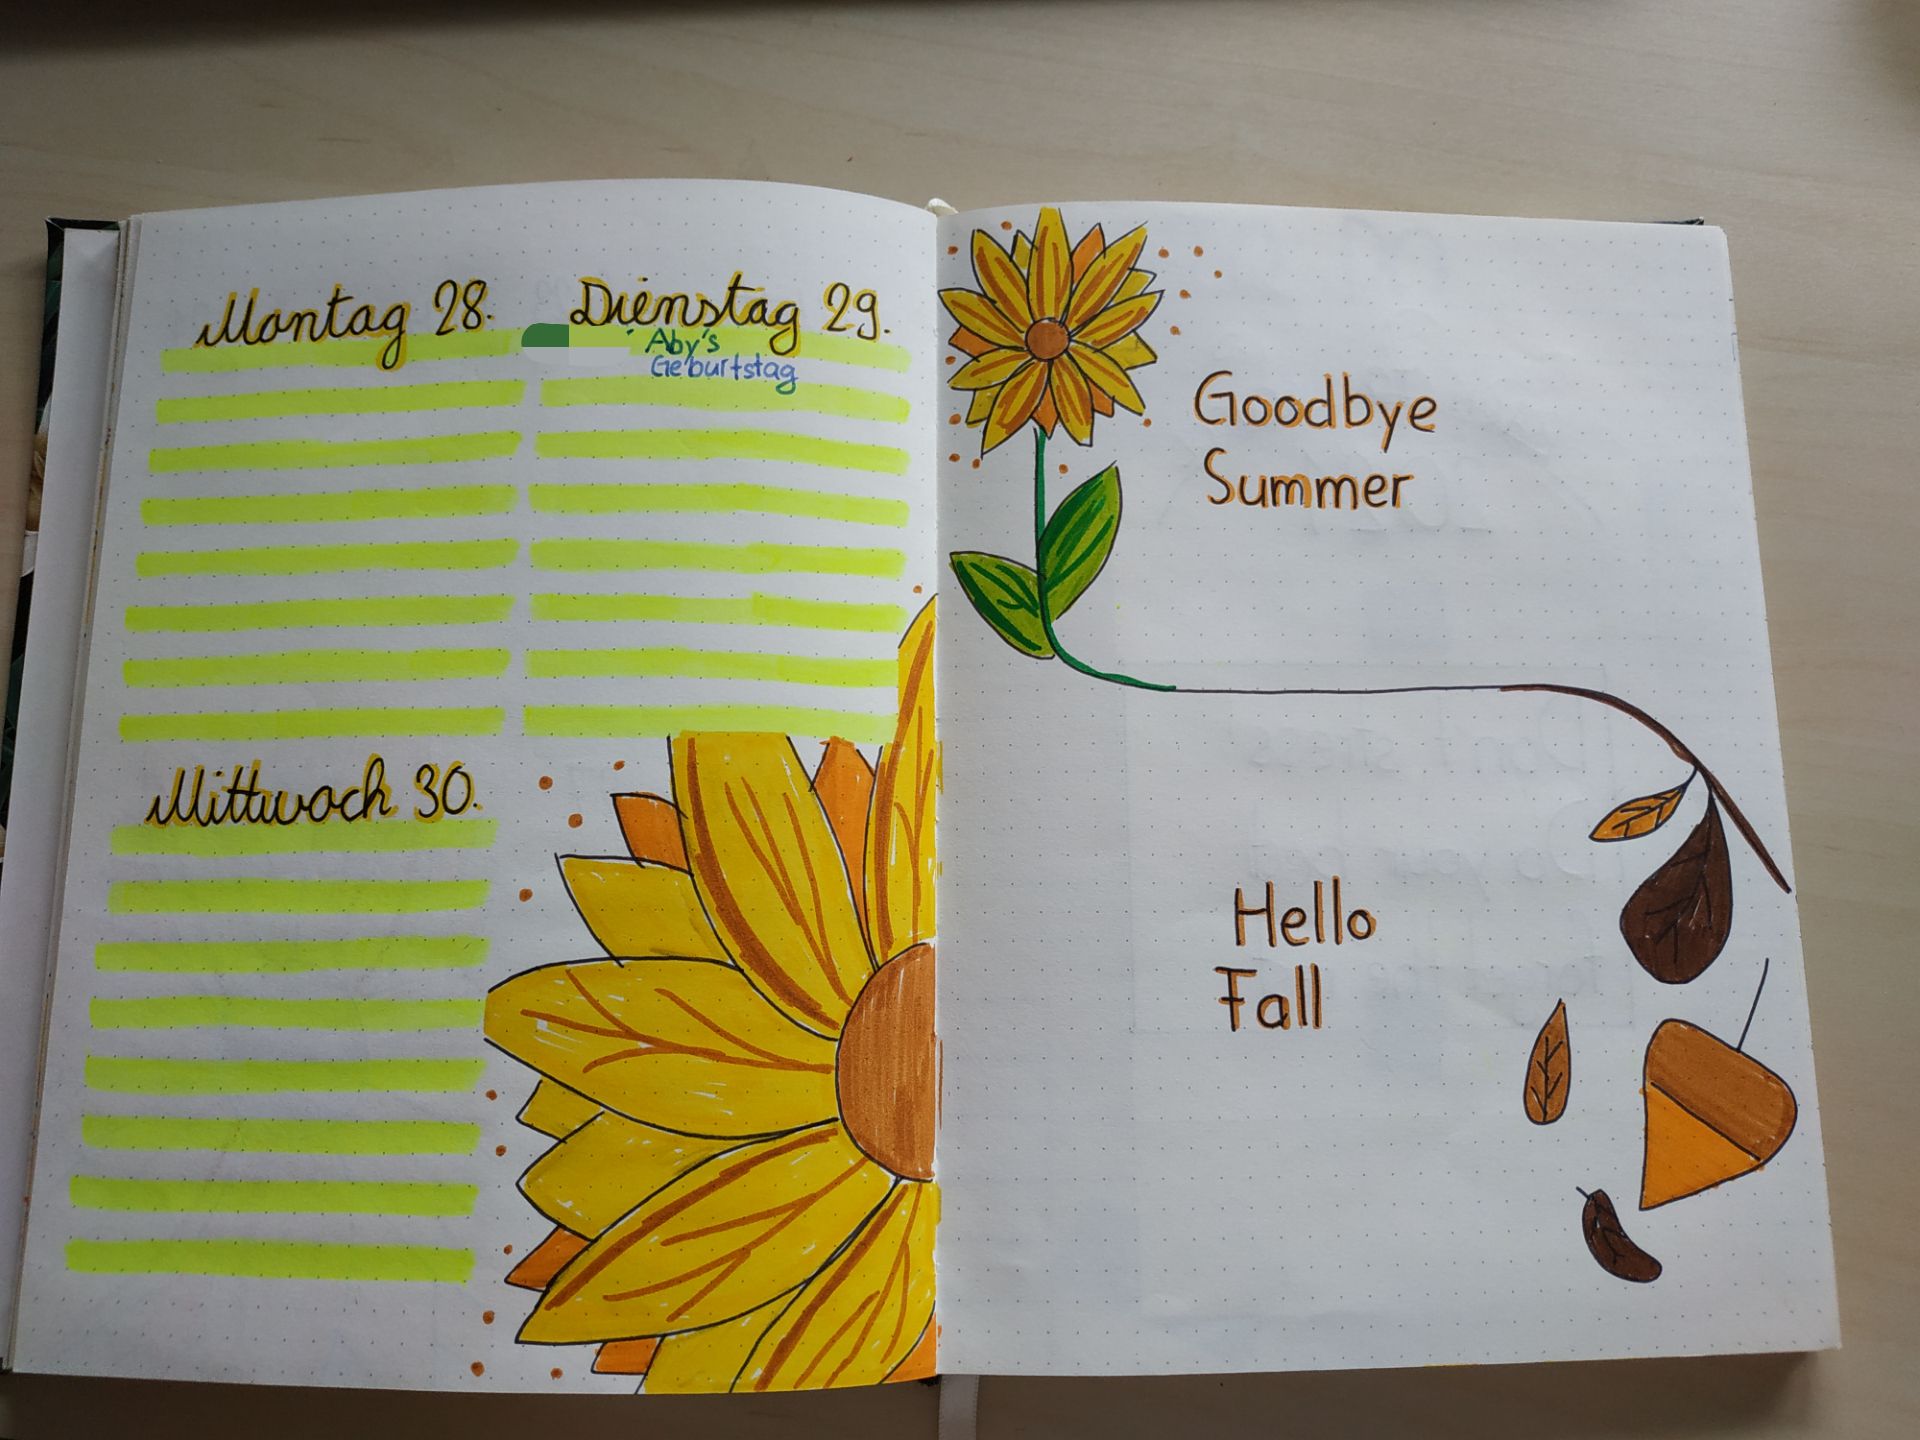 Montag 28.
Dienstag 29.
Aby's
Geburtstag
Mittwoch 30.
Goodbye
Summer
Hello
Fall